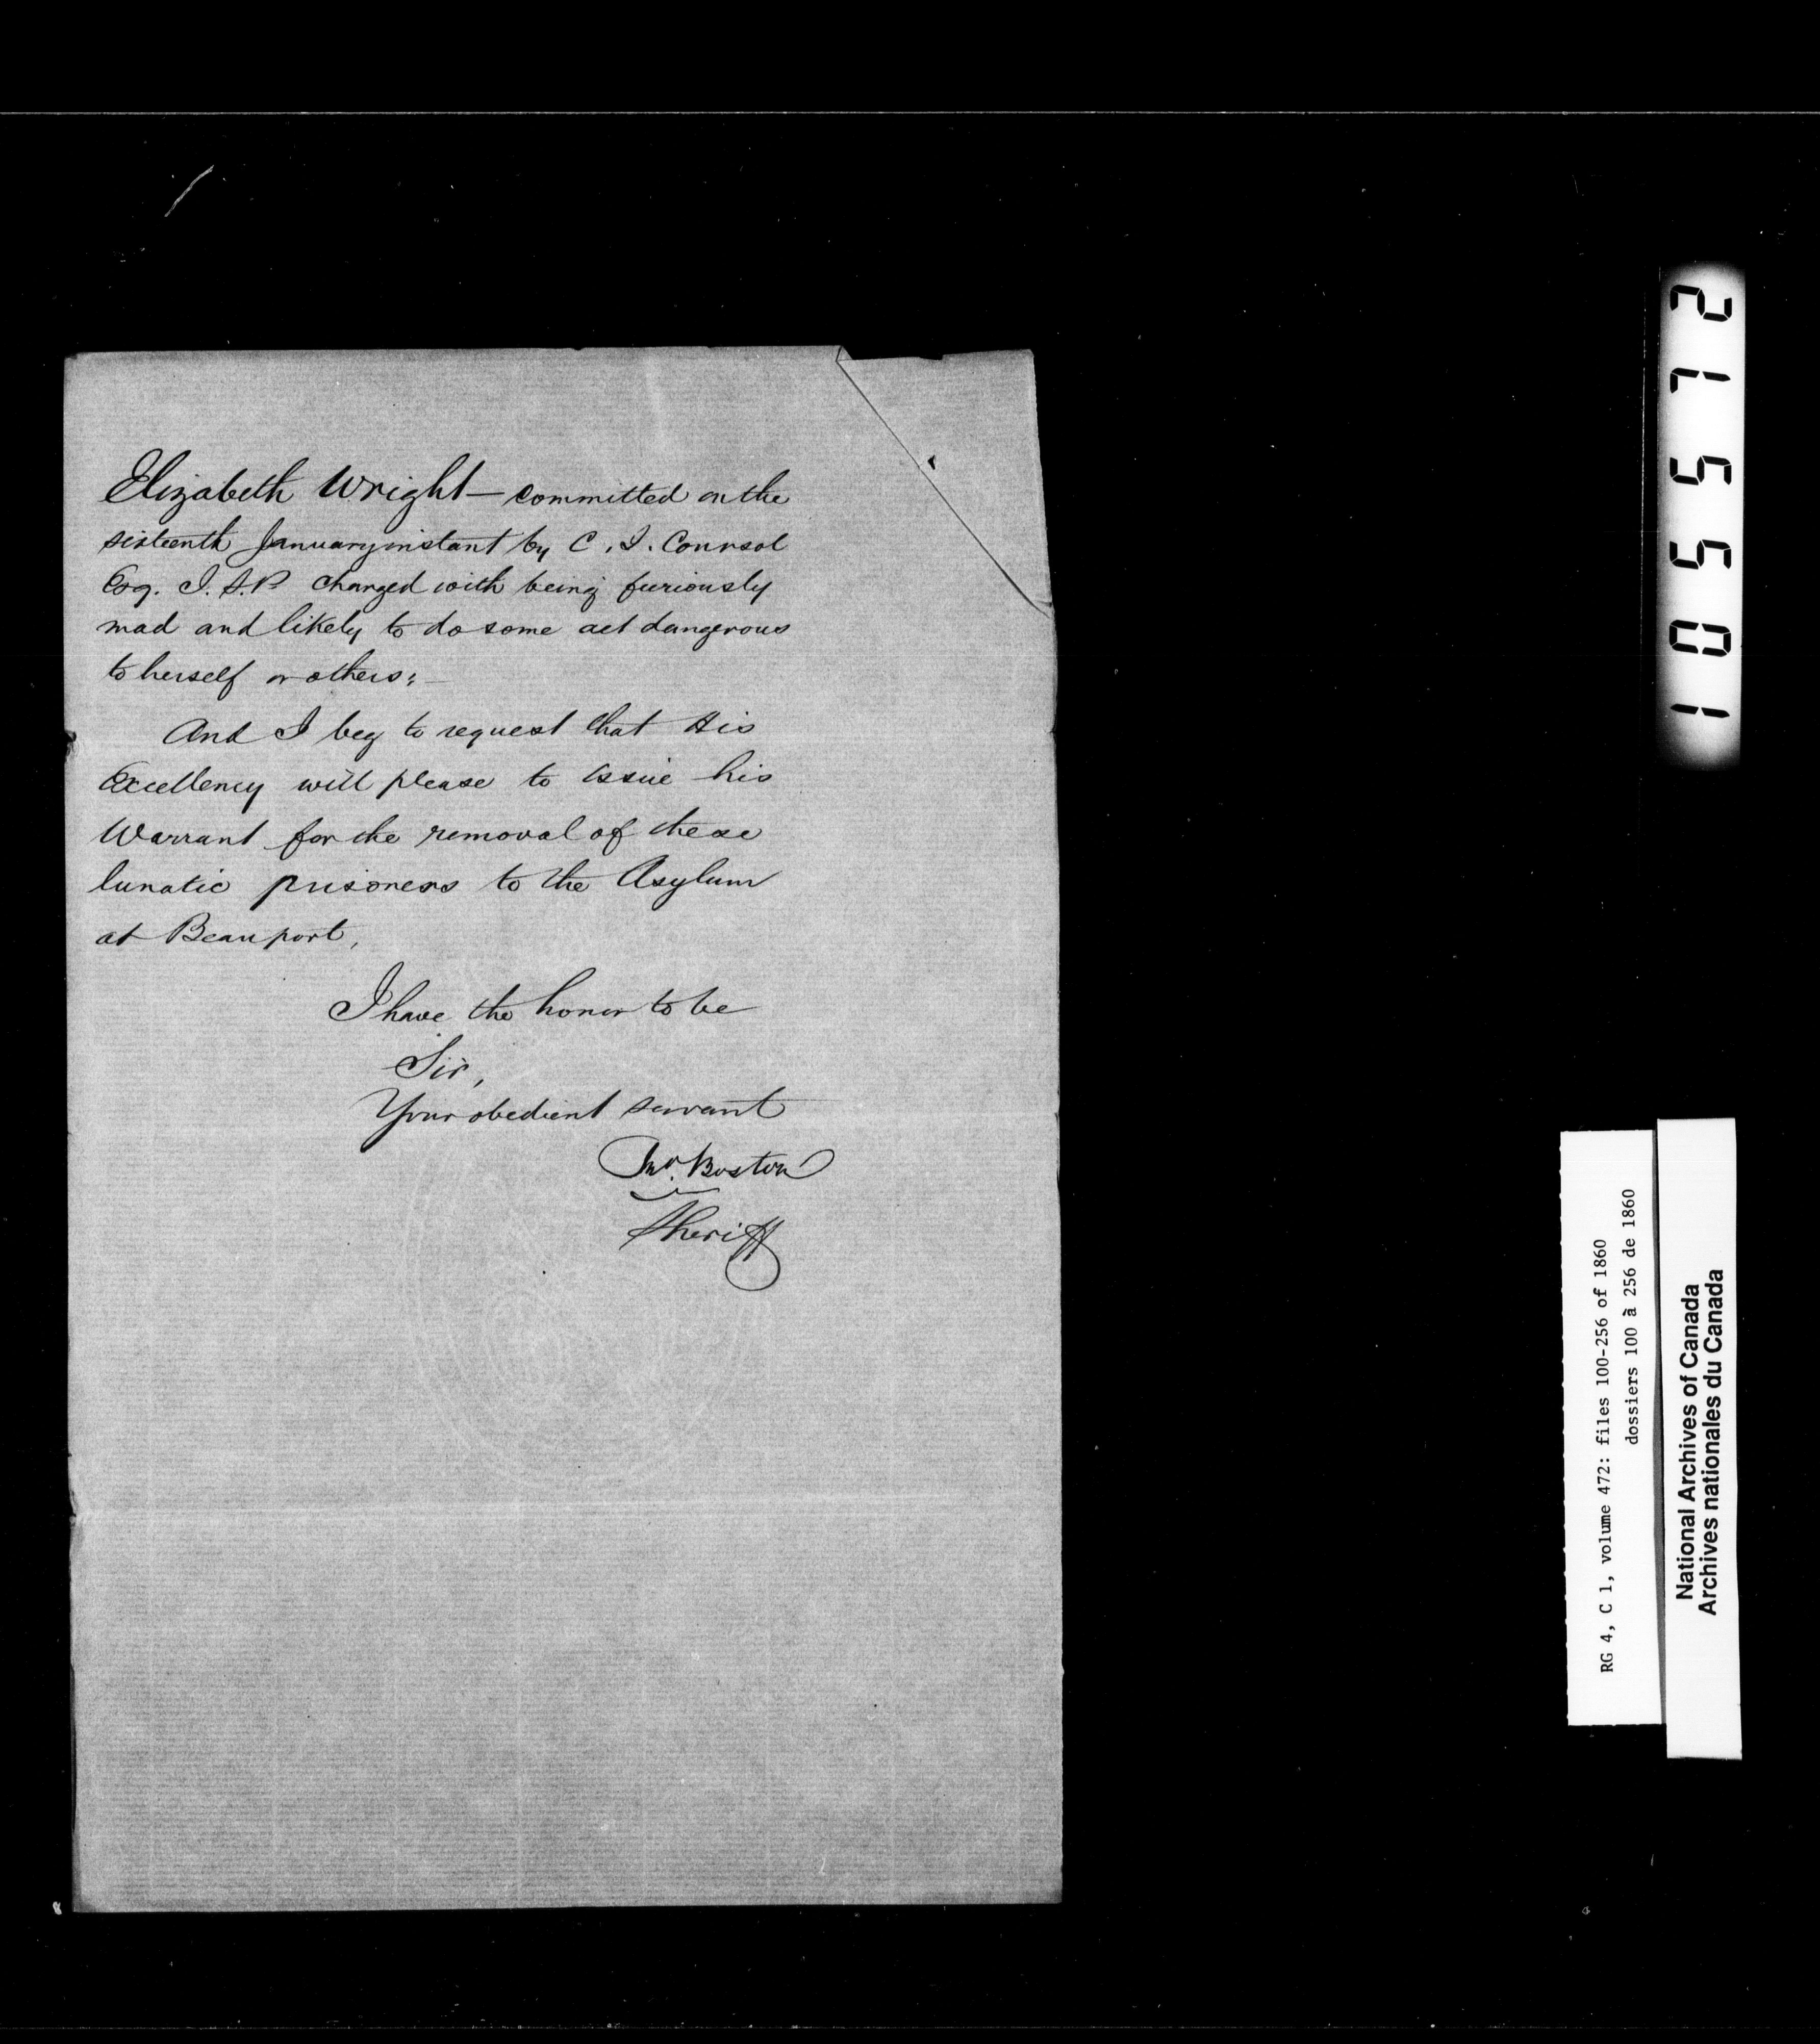 Elizabeth Wright — committed on the
sixteenth January instant by C. J. Coursol
Esq. I. S. P charged with being furiously
mad and likely to do some act dangerous
to herself or others; —
And I beg to request that His
Excellency will please to issue his
Warrant for the removal of these
lunatic prisoners to the Asylum
at Beauport,
I have the honor to be
Sir,
Your obedient servant
Jno. Boston
Sheriff
105572
RG 4, C 1, volume 472: files 100-256 of 1860
dossiers 100 à 256 de 1860
National Archives of Canada
Archives nationales du Canada